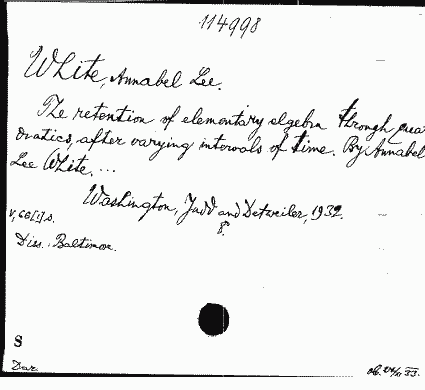 114998
White, Annabel Lee.
The retention of elementary algebra through qua
dratics, after varying intervals of time. By Annabel
Lee White. ...
Washington, Judd and Detweiler, 1932.
8°.
V, 66 [1] s.
Diss. Baltimore.
S
Dar.